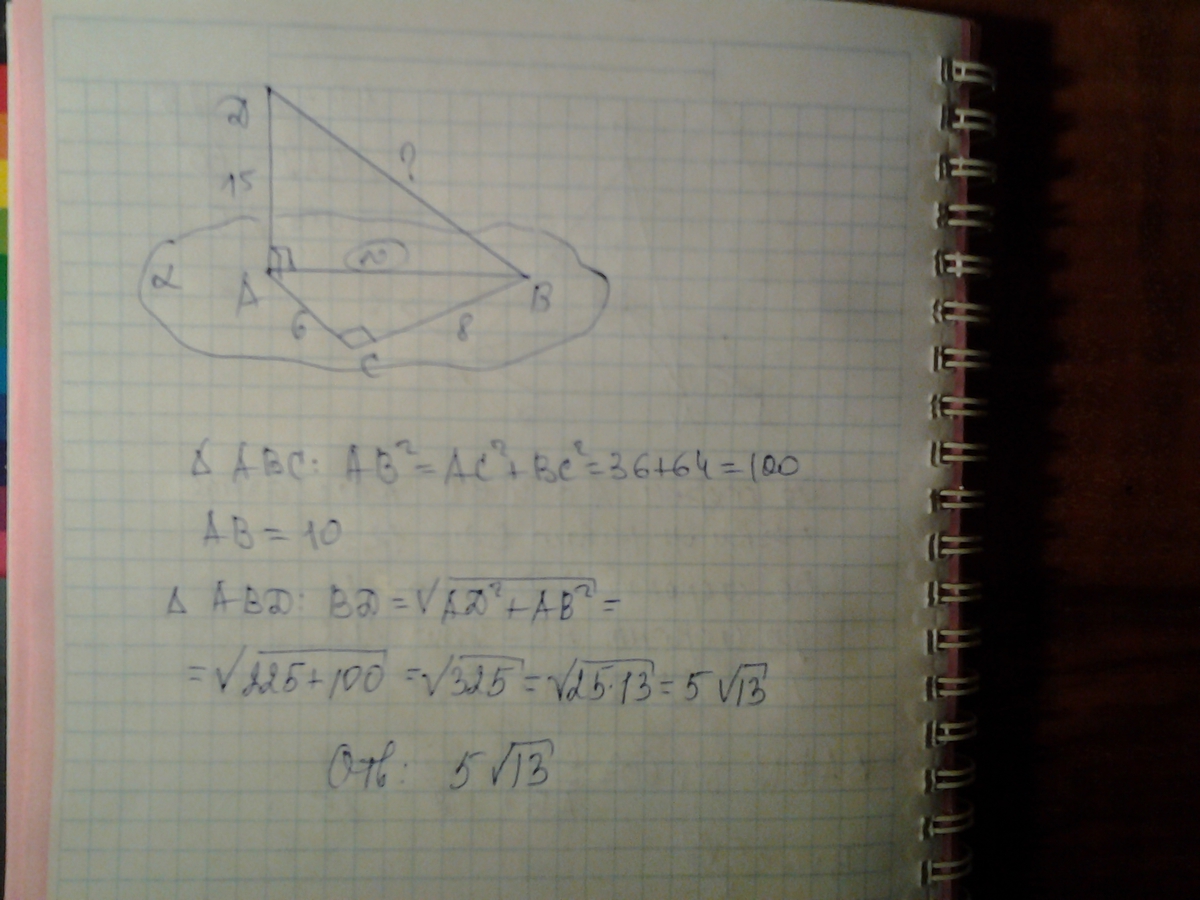 D
?
15
α
A
B
6
8
C
Δ ABC: AB² = AC² + BC² = 36+64 = 100
AB = 10
Δ ABD: BD = √AD² + AB² =
= √225+100 = √325 = √25·13 = 5√13
Отв: 5√13